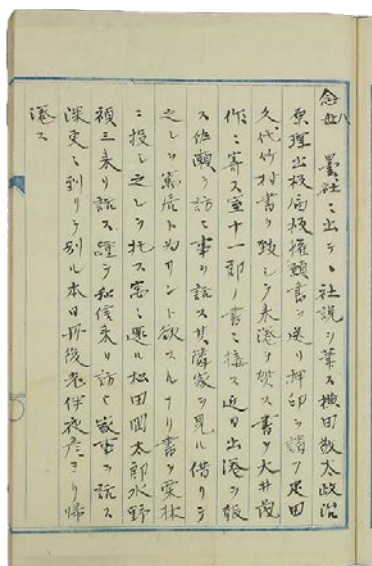 念八　曇社ニ出テ社説ヲ草ス横田敬太政治
原理出板届板権願書ヲ送リ押印ヲ請フ足田
久代竹村書ヲ致シテ来港ヲ促ス書ヲ大井
作ニ寄ス室十一郎ノ書ニ接ス近日出港ヲ報
ス佐瀬ヲ訪ヒ事ヲ話ス其隣家ヲ見ル借リテ
之レヲ寓居ト為サント欲スルナリ書ヲ栗林
ニ投シ之レヲ托ス寓ニ還ル松田周太郎水野
禎三来リ話ス踵テ私信来リ訪ヒ家事ヲ話ス
深更ニ到リテ別ル本日丹後老伴夜
港ス